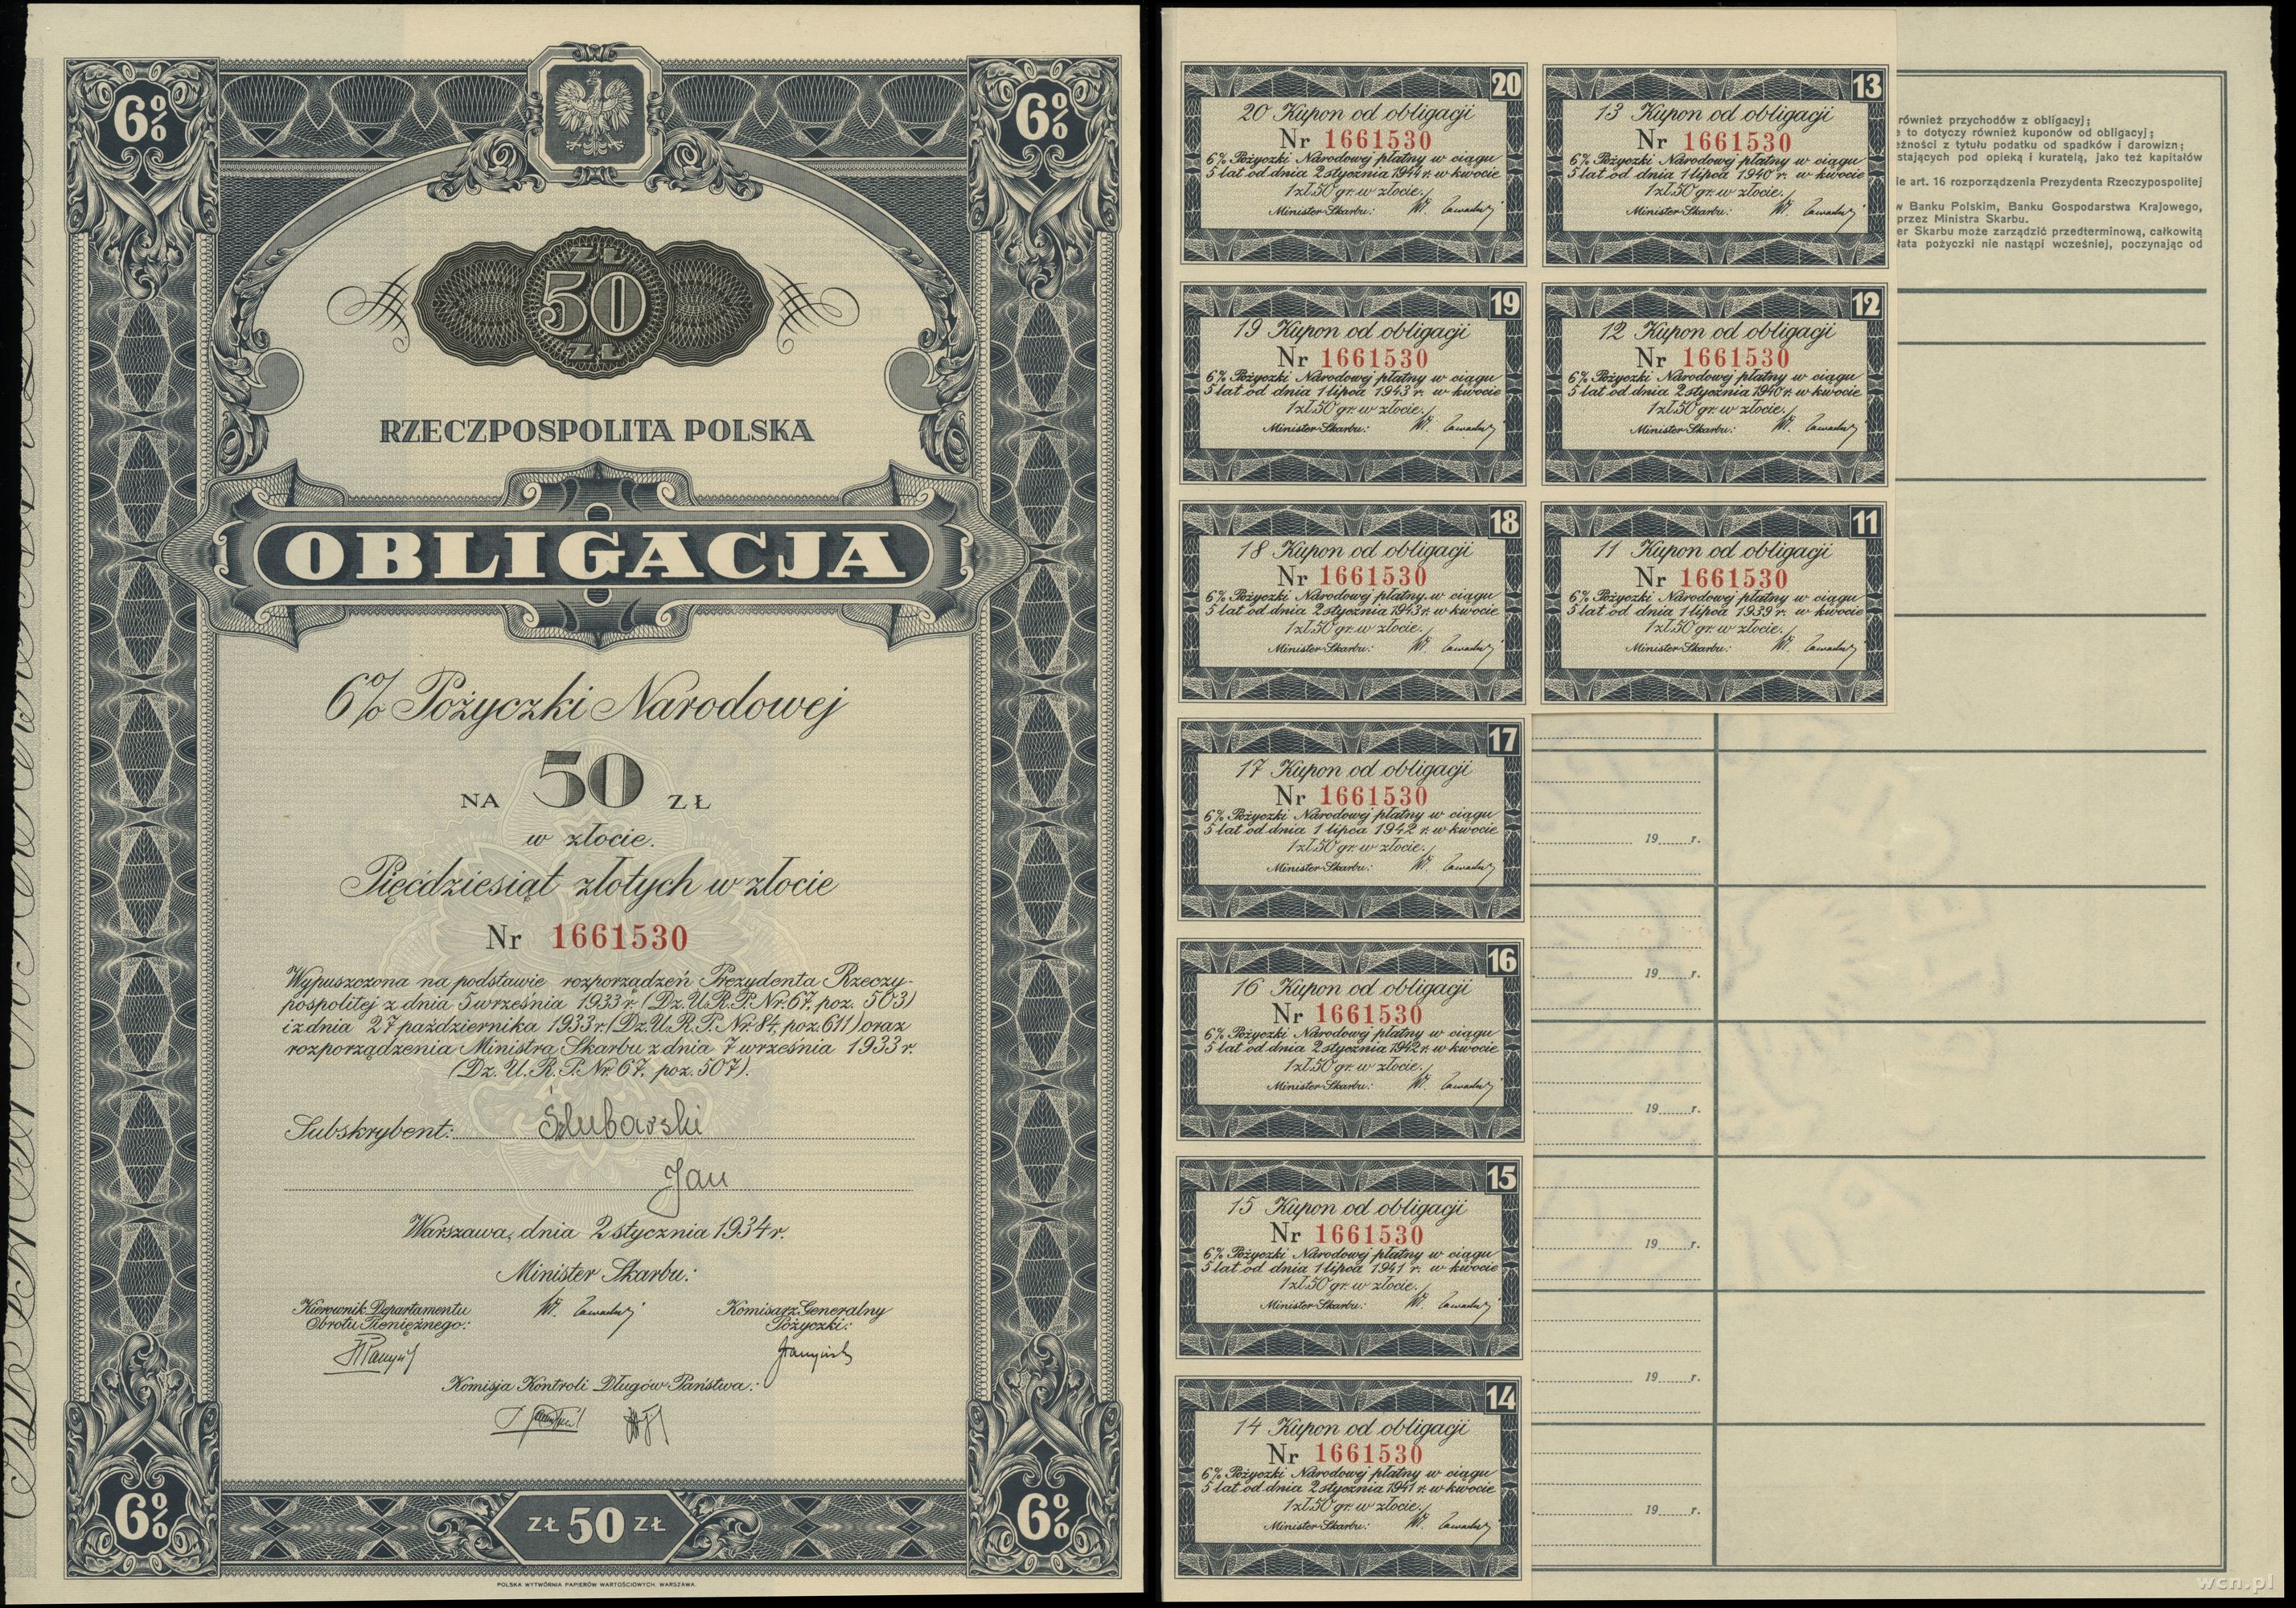 6%
6%
ZŁ
50
ZŁ
RZECZPOSPOLITA POLSKA
OBLIGACJA
6% Pożyczki Narodowej
NA 50 ZŁ
w złocie.
Pięćdziesiąt złotych w złocie
Nr 1661530
Wypuszczona na podstawie rozporządzeń Prezydenta Rzeczy-
pospolitej z dnia 5 września 1933 r. (Dz. U. R. P. Nr. 67, poz. 503)
i z dnia 27 października 1933 r. (Dz. U. R. P. Nr. 84, poz. 611) oraz
rozporządzenia Ministra Skarbu z dnia 7 września 1933 r.
(Dz. U. R. P. Nr. 67, poz. 507).
Subskrybent:
Jan
Warszawa, dnia 2 stycznia 1934 r.
Minister Skarbu:
Kierownik Departamentu
Obrotu Pieniężnego:
Komisarz Generalny
Pożyczki:
Komisja Kontroli Długów Państwa:
6%
ZŁ 50 ZŁ
6%
POLSKA WYTWÓRNIA PAPIERÓW WARTOŚCIOWYCH. WARSZAWA.
20
20 Kupon od obligacji
Nr 1661530
6% Pożyczki Narodowej płatny w ciągu
5 lat od dnia 2 stycznia 1944 r. w kwocie
1 zł. 50 gr. w złocie.
Minister Skarbu:
19
19 Kupon od obligacji
Nr 1661530
6% Pożyczki Narodowej płatny w ciągu
5 lat od dnia 1 lipca 1943 r. w kwocie
1 zł. 50 gr. w złocie.
Minister Skarbu:
18
18 Kupon od obligacji
Nr 1661530
6% Pożyczki Narodowej płatny w ciągu
5 lat od dnia 2 stycznia 1943 r. w kwocie
1 zł. 50 gr. w złocie.
Minister Skarbu:
17
17 Kupon od obligacji
Nr 1661530
6% Pożyczki Narodowej płatny w ciągu
5 lat od dnia 1 lipca 1942 r. w kwocie
1 zł. 50 gr. w złocie.
Minister Skarbu:
16
16 Kupon od obligacji
Nr 1661530
6% Pożyczki Narodowej płatny w ciągu
5 lat od dnia 2 stycznia 1942 r. w kwocie
1 zł. 50 gr. w złocie.
Minister Skarbu:
15
15 Kupon od obligacji
Nr 1661530
6% Pożyczki Narodowej płatny w ciągu
5 lat od dnia 1 lipca 1941 r. w kwocie
1 zł. 50 gr. w złocie.
Minister Skarbu:
14
14 Kupon od obligacji
Nr 1661530
6% Pożyczki Narodowej płatny w ciągu
5 lat od dnia 2 stycznia 1941 r. w kwocie
1 zł. 50 gr. w złocie.
Minister Skarbu:
13
13 Kupon od obligacji
Nr 1661530
6% Pożyczki Narodowej płatny w ciągu
5 lat od dnia 1 lipca 1940 r. w kwocie
1 zł. 50 gr. w złocie.
Minister Skarbu:
12
12 Kupon od obligacji
Nr 1661530
6% Pożyczki Narodowej płatny w ciągu
5 lat od dnia 2 stycznia 1940 r. w kwocie
1 zł. 50 gr. w złocie.
Minister Skarbu:
11
11 Kupon od obligacji
Nr 1661530
6% Pożyczki Narodowej płatny w ciągu
5 lat od dnia 1 lipca 1939 r. w kwocie
1 zł. 50 gr. w złocie.
Minister Skarbu:
również przychodów z obligacyj;
to dotyczy również kuponów od obligacyj;
z tytułu podatku od spadków i darowizn;
pod opieką i kuratelą, jako też kapitałów
art. 16 rozporządzenia Prezydenta Rzeczypospolitej
w Banku Polskim, Banku Gospodarstwa Krajowego,
przez Ministra Skarbu.
Skarbu może zarządzić przedterminową, całkowitą
pożyczki nie nastąpi wcześniej, poczynając od
19 r.
19 r.
19 r.
19 r.
19 r.
19 r.
wcn.pl